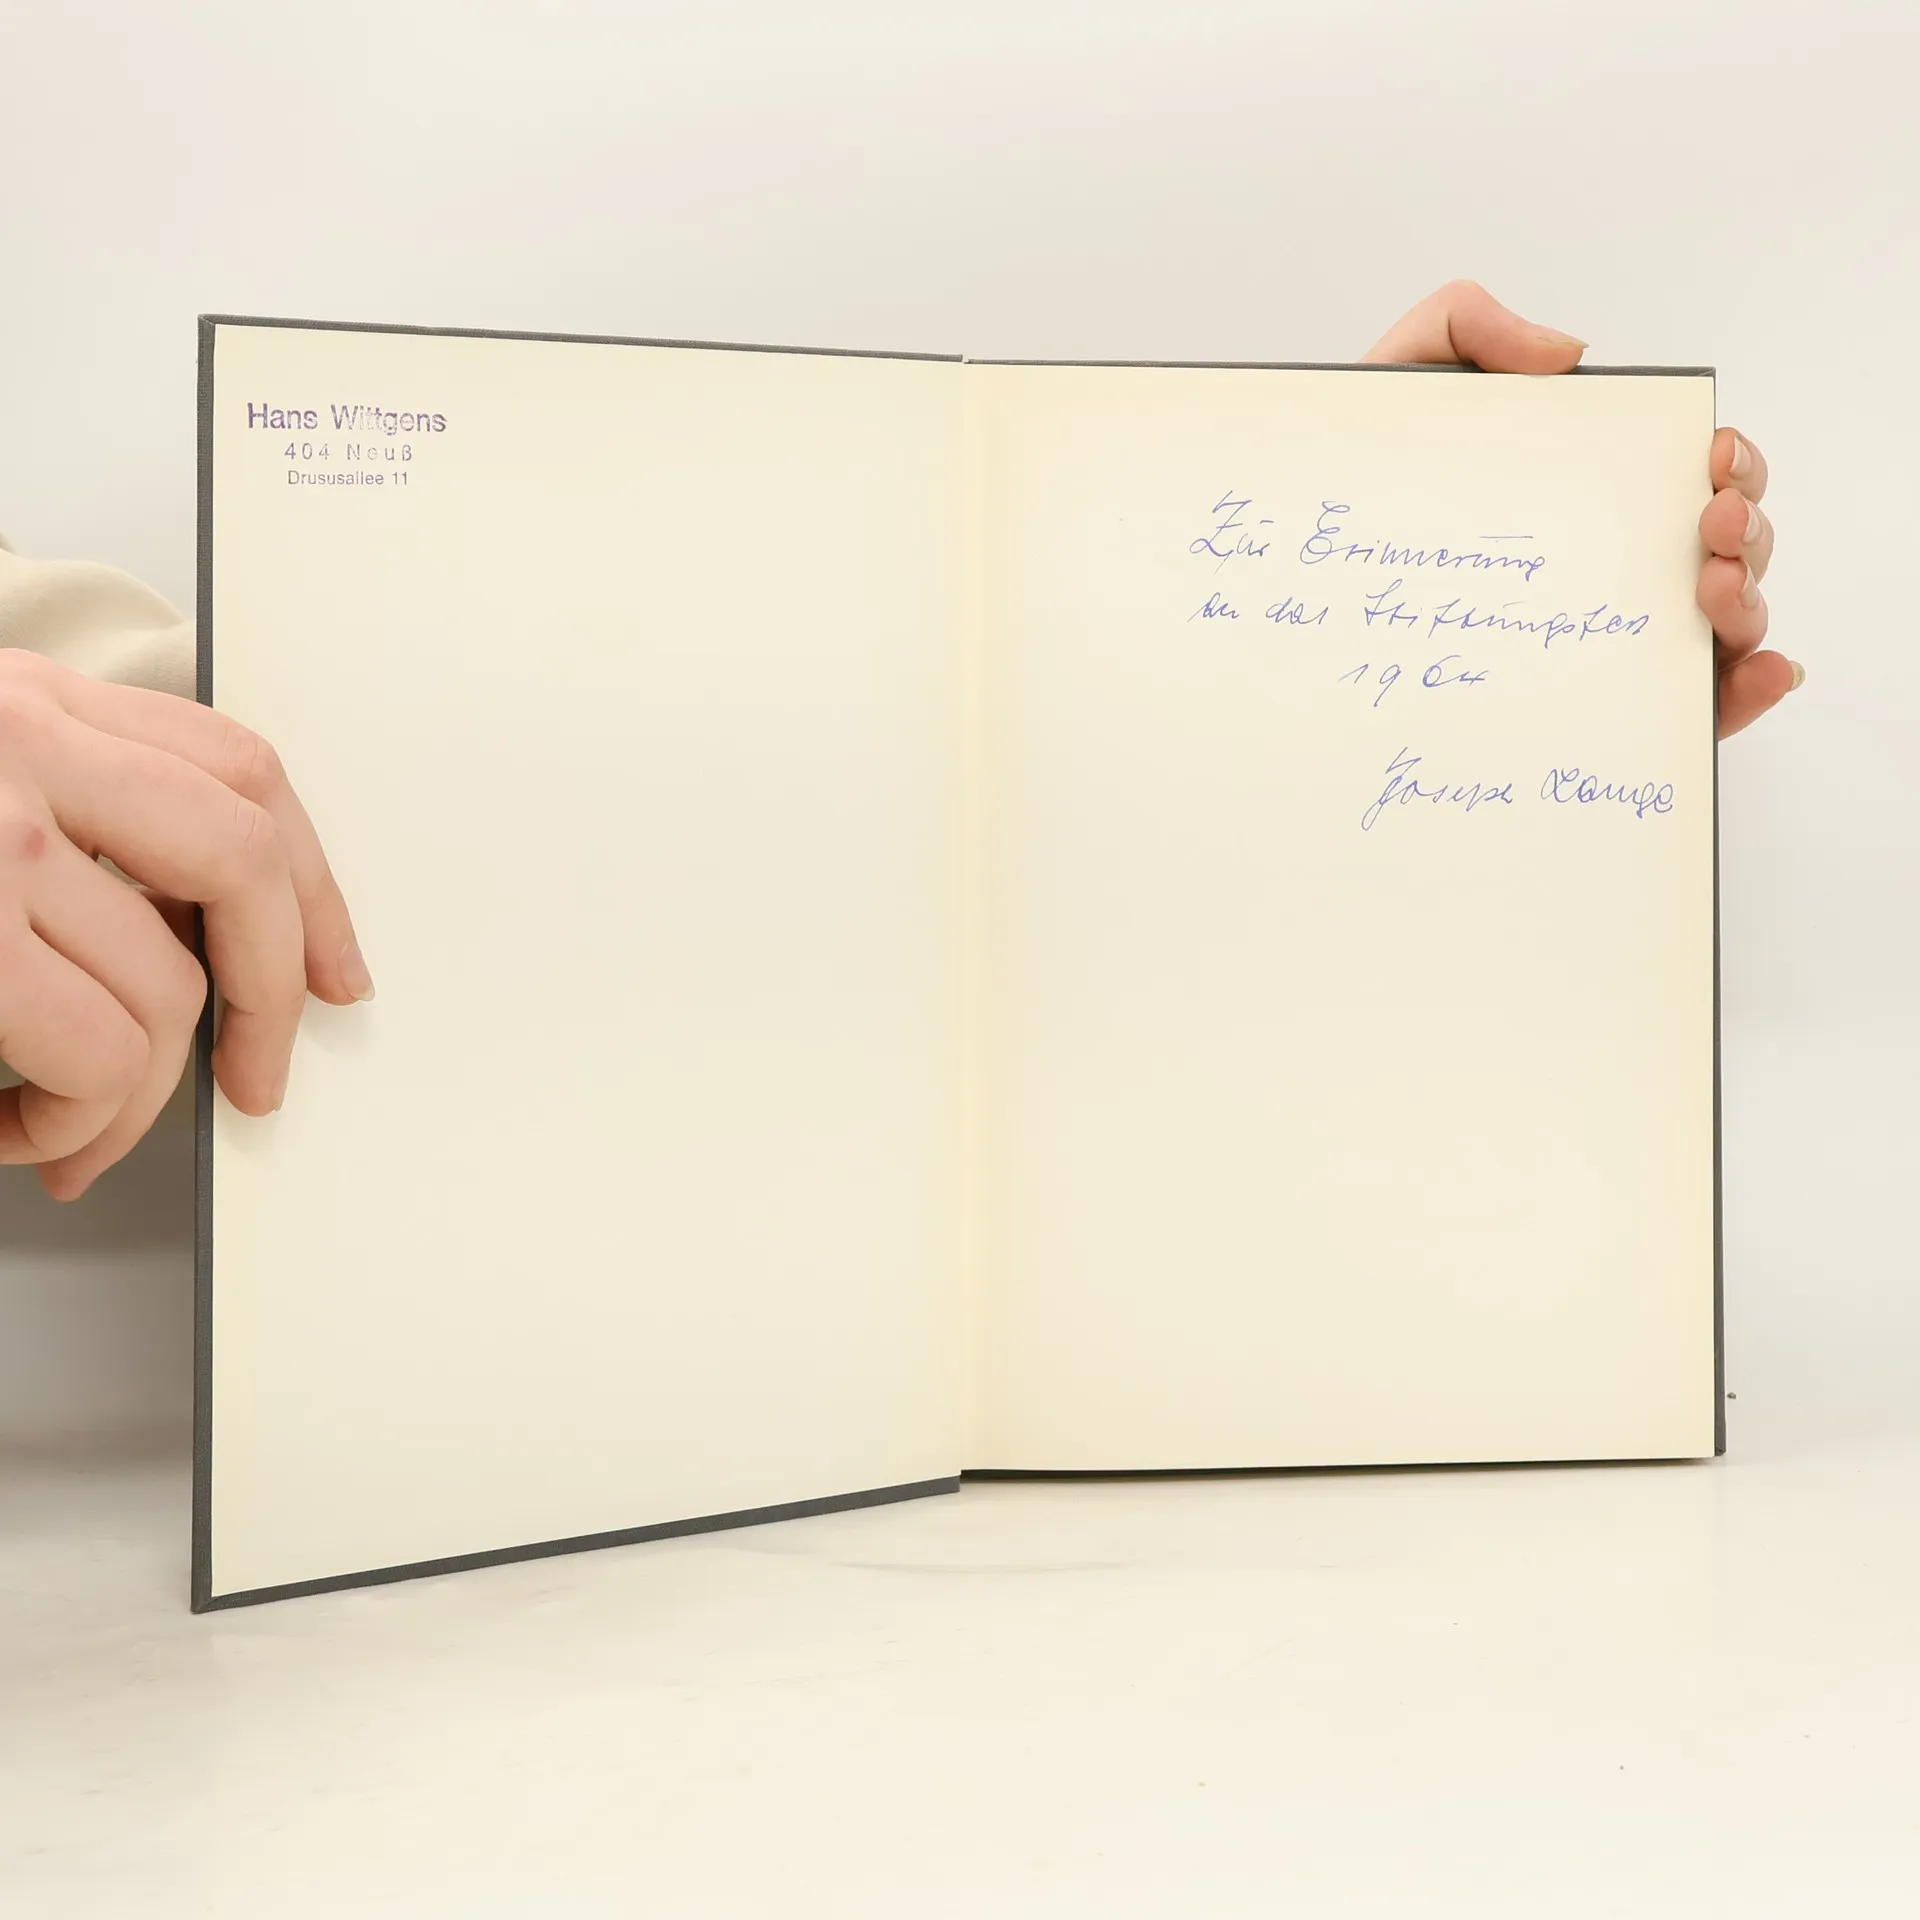 Hans Wittgens
404 Neuß
Drususallee 11
Zur Erinnerung
an das Stiftungsfest
1964
Joseph Lange